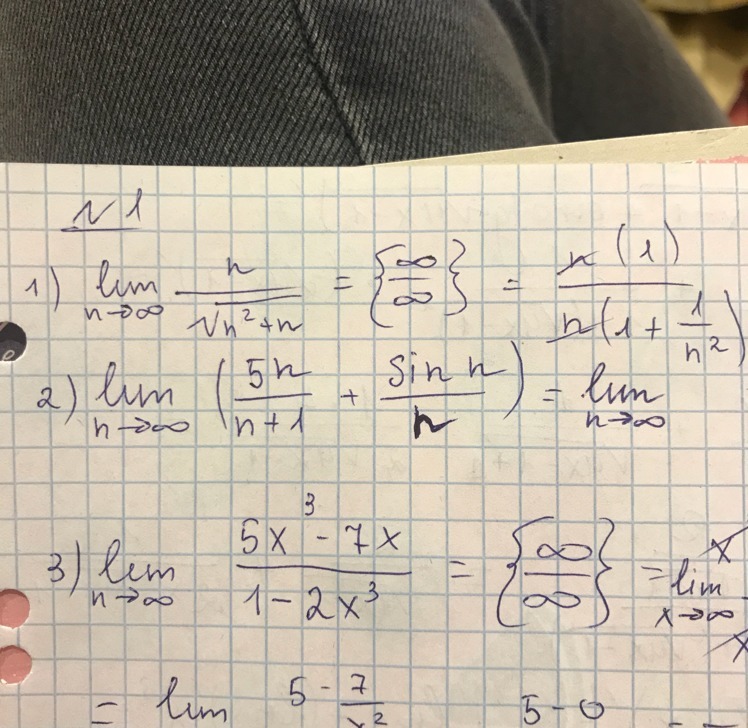 №1
1) lim n→∞ n/√(n²+n) = {∞/∞} = n(1)/n(1 + 1/n²)
2) lim n→∞ (5n/(n+1) + sin n/n) = lim n→∞
3) lim n→∞ (5x³ - 7x)/(1 - 2x³) = {∞/∞} = lim x→∞ x
= lim 5 - 7/x² 5 - 0